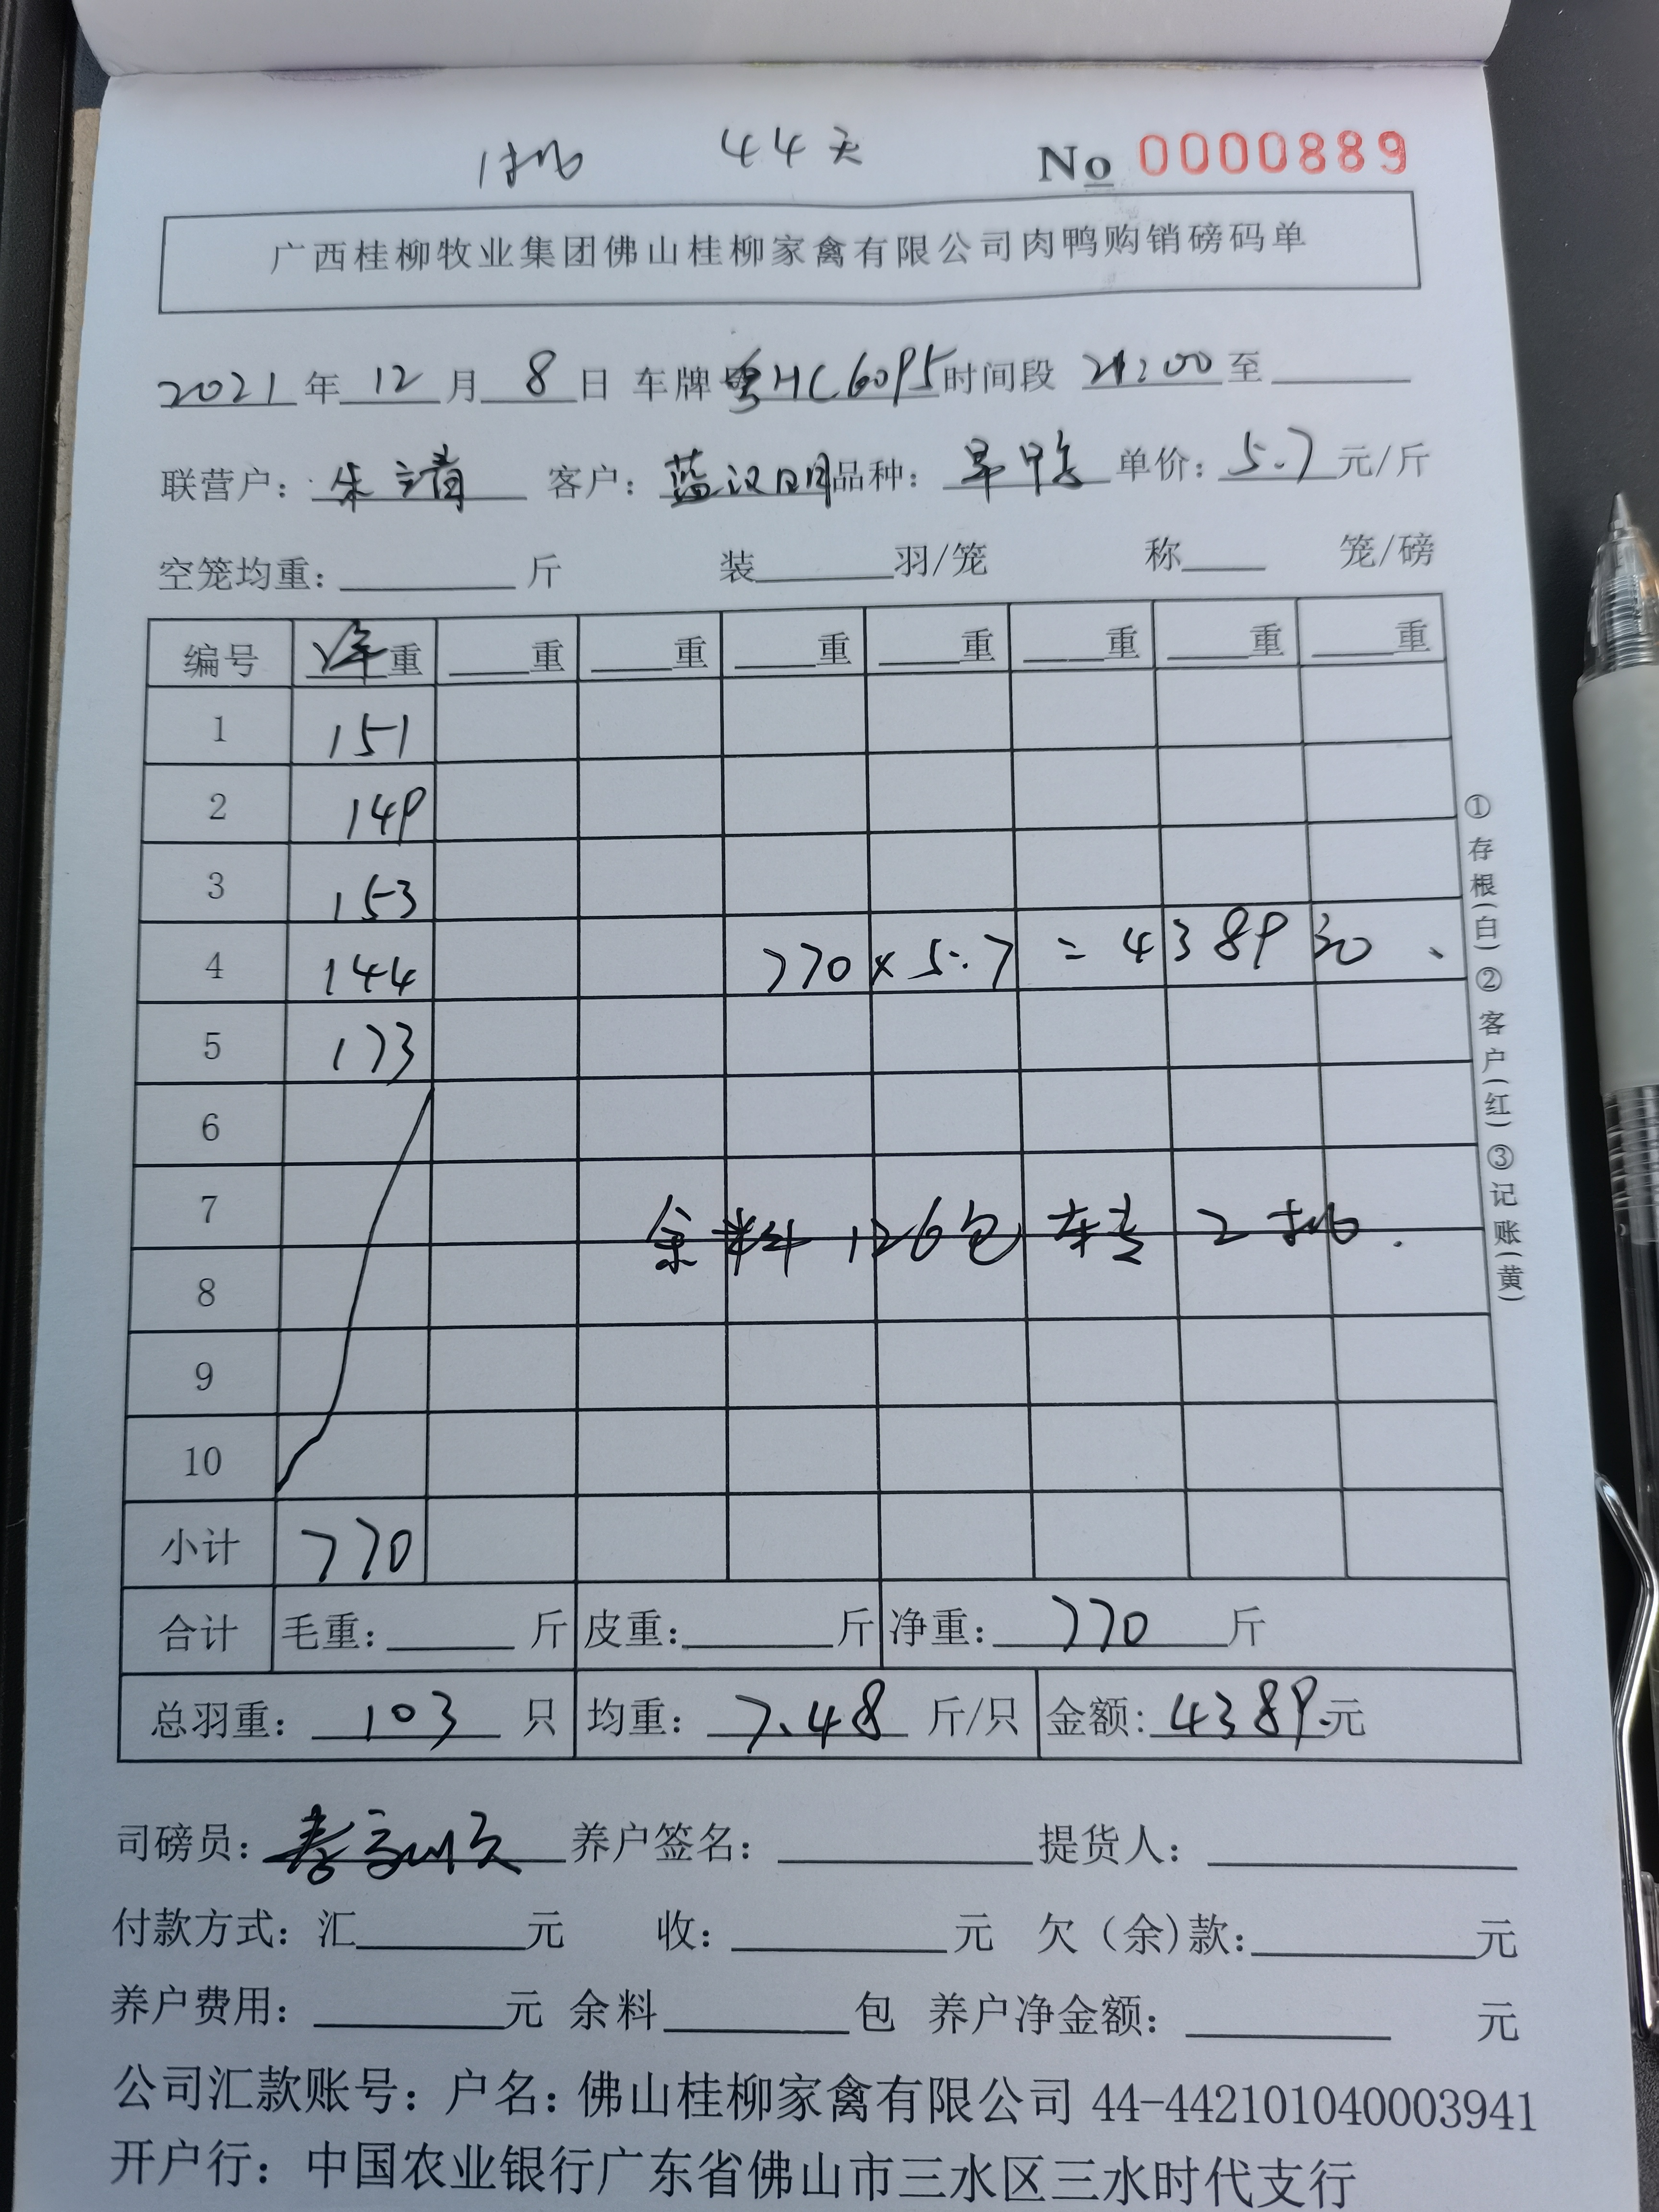 1批 44天 No 0000889
广西桂柳牧业集团佛山桂柳家禽有限公司肉鸭购销磅码单
2021年12月8日 车牌粤HC6095时间段 21:00至
联营户: 朱 客户: 蓝汉明 品种: 旱鸭 单价: 5.7元/斤
空笼均重: 斤 装 羽/笼 称 笼/磅
编号 净重 重 重 重 重 重 重 重
1 151
2 149
3 153
4 144 770×5.7=4389 元
5 173
6
7 余料126包 转 2批.
8
9
10
小计 770
合计 毛重: 斤 皮重: 斤 净重: 770斤
总羽重: 103只 均重: 7.48斤/只 金额: 4389.元
司磅员: 养户签名: 提货人:
付款方式: 汇 元 收: 元 欠(余)款: 元
养户费用: 元 余料 包 养户净金额: 元
公司汇款账号: 户名: 佛山桂柳家禽有限公司 44-442101040003941
开户行: 中国农业银行广东省佛山市三水区三水时代支行
①存根(白)②客户(红)③记账(黄)